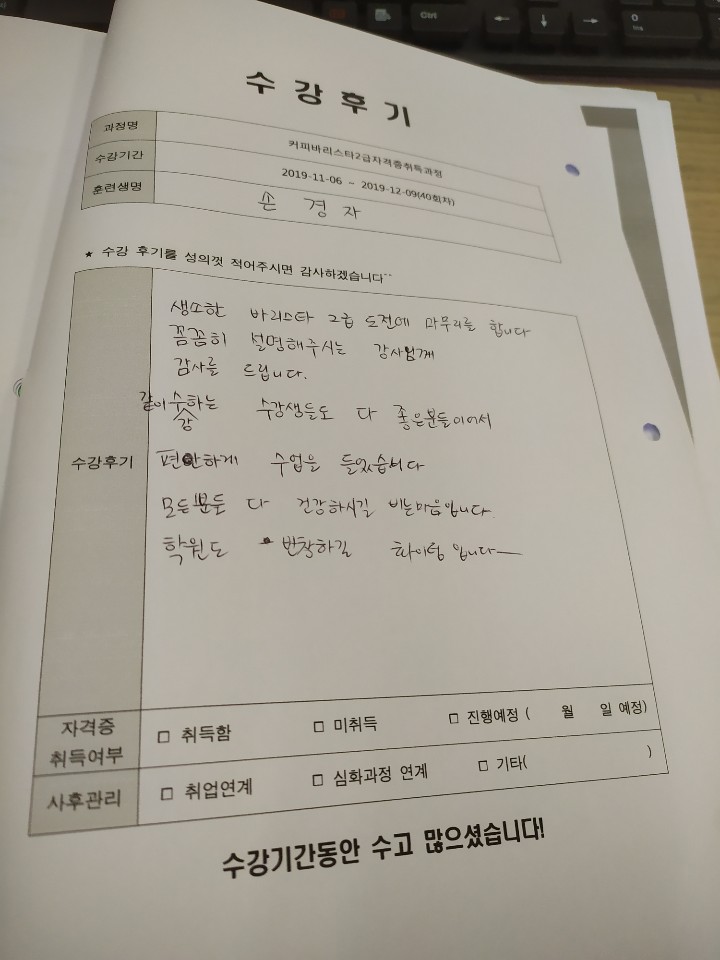 Ctrl
수 강 후 기
과정명 커피바리스타2급자격증취득과정
수강기간 2019-11-06 ~ 2019-12-09(40회차)
훈련생명 손 경 자
★ 수강 후기를 성의껏 적어주시면 감사하겠습니다^^
생소한 바리스타 2급 도전에 마무리를 합니다
꼼꼼히 설명해주시는 강사님께
감사를 드립니다.
같이 수강하는 수강생들도 다 좋은분들이어서
수강후기 편안하게 수업을 들었습니다
모든분들 다 건강하시길 비는마음입니다.
학원도 번창하길 화이팅 입니다
자격증
취득여부 □ 취득함 □ 미취득 □ 진행예정 ( 월 일 예정)
사후관리 □ 취업연계 □ 심화과정 연계 □ 기타( )
수강기간동안 수고 많으셨습니다!